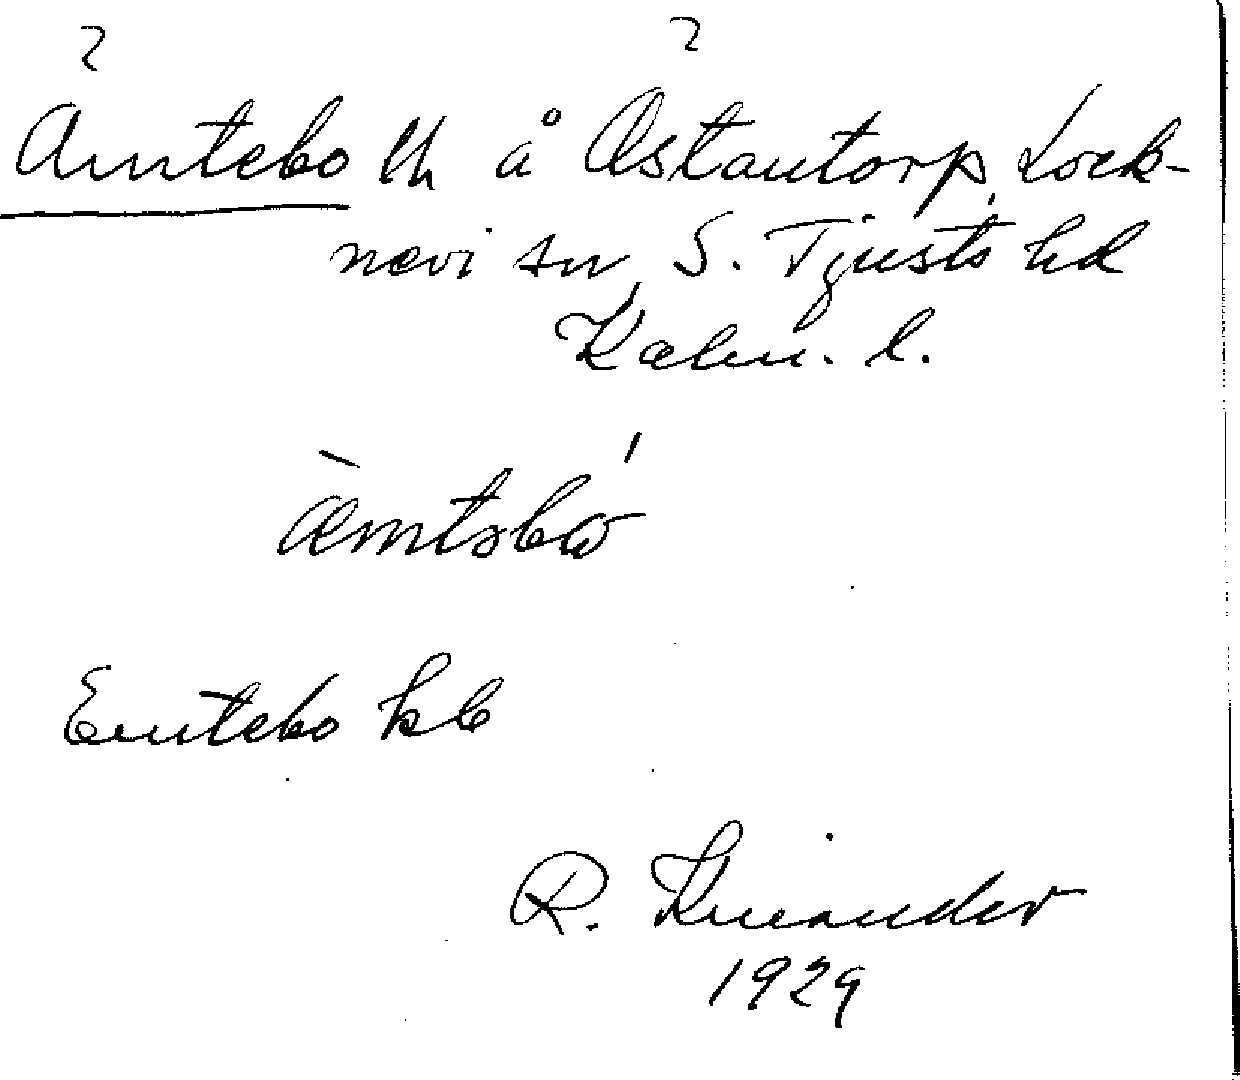 ? ?
Ämtebo lh å Åstantorp, Lock-
nevi sn, S. Tjusts hd
Kalm. l.
æ̀mtsbó
Emtebo kb
R. Kniander
1929